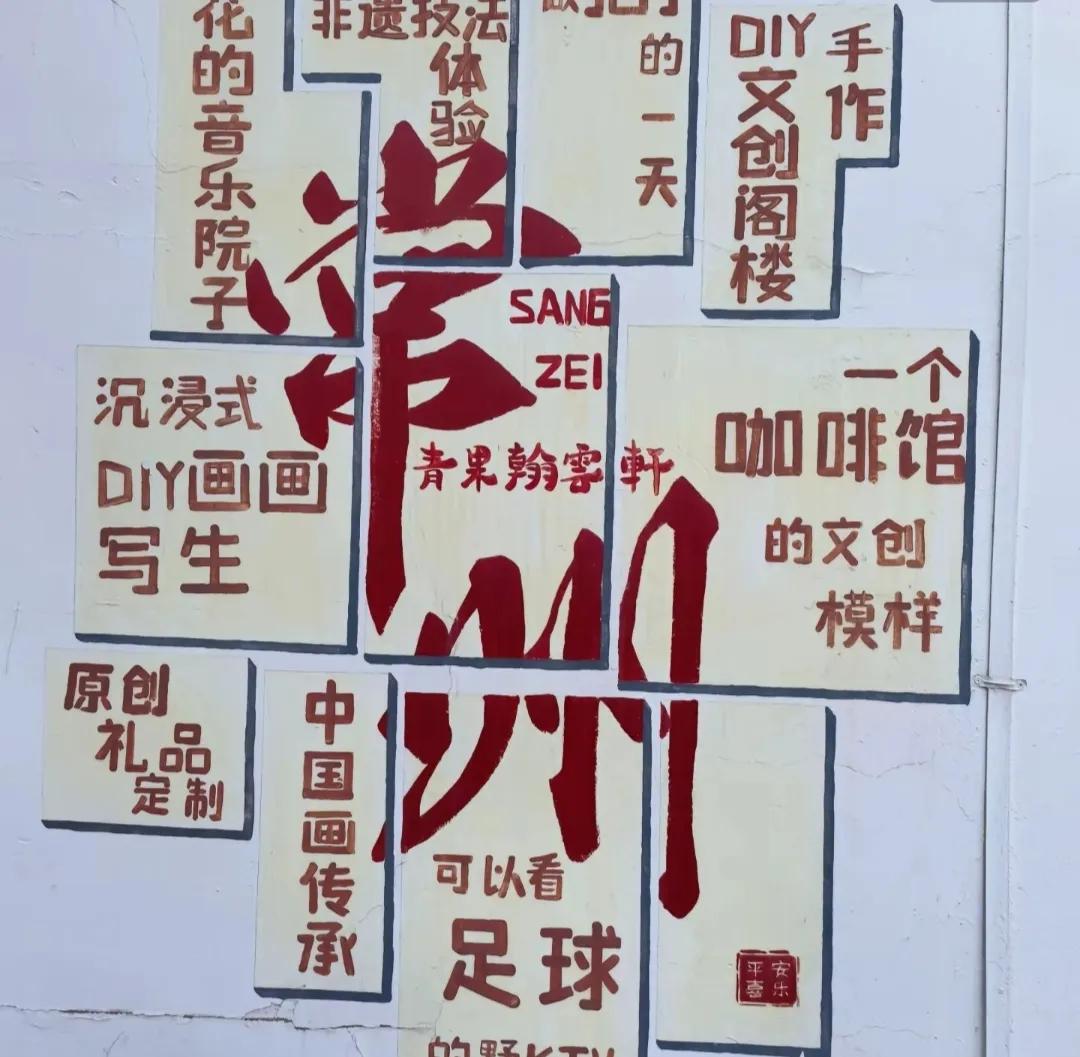 化的音乐院子
非遗技法
体验
的一天
DIY
文创阁楼
手作
常州
SANG
ZEI
青果翰雲軒
沉浸式
DIY画画
写生
一个
咖啡馆
的文创
模样
原创
礼品
定制
中国画传承
可以看
足球
的野KTV
平安
喜乐